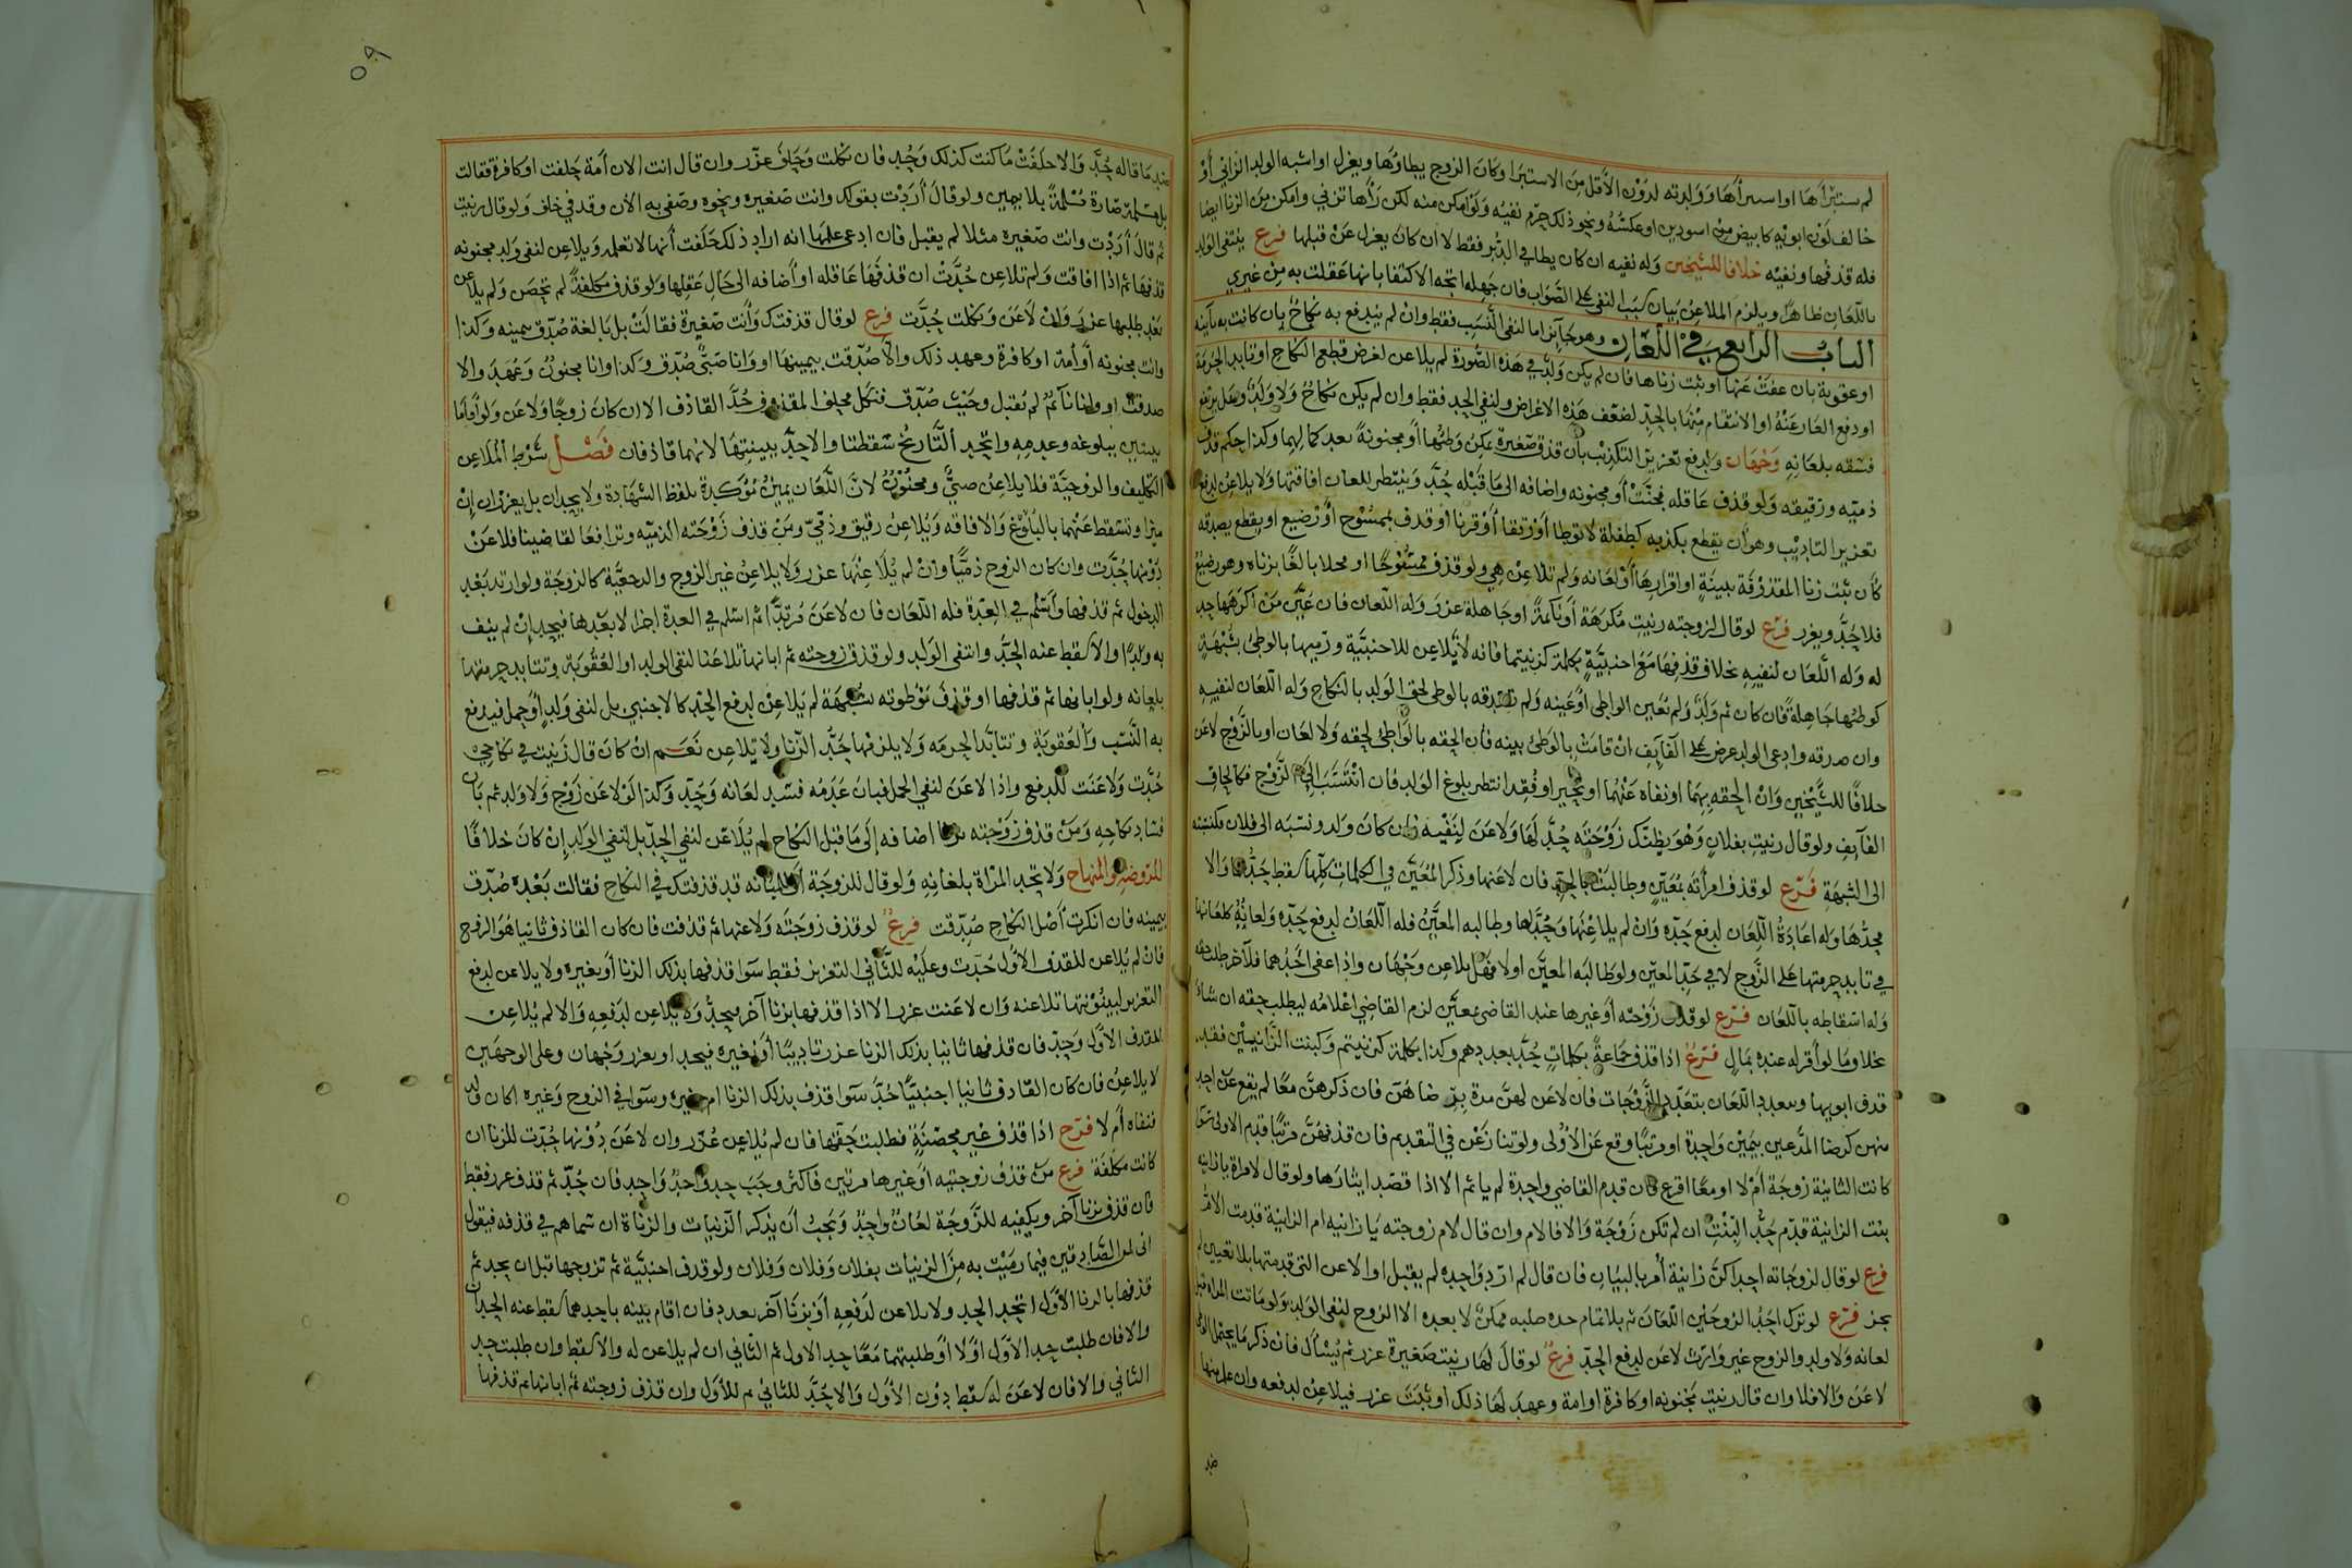 لم يستبرأها او استبرأها وولدته لدون الأقل من الاستبرا وكان الزوج يطاوها ويعزل او اشبه الولد الزاني أو
خالف لون ابويه كابيض من اسودين او عكسه ونحو ذلك حرم نفيه ولو امكن منه لكن رآها تزني وامكن من الزنا ايضا
فله قذفها ونفيه خلافا للشيخين وله نفيه ان كان يطا في الدبر فقط لا ان كان يعزل عن قبلها فرع ينتفى الولد
باللعان ظاهرا ويلزم الملاعن بيان سبب النفي على الصواب فان جهله اتجه الاكتفا بانها عقلت به من غيري
الباب الرابع في اللعان وهو جائز اما لنفي النسب فقط وان لم يندفع به نكاح بان كانت به بائنه
او عقوبة بان عفت عنها او ثبت زناها فان لم يكن ولد في هذه الصورة لم يلاعن لغرض قطع النكاح او تابد الحرمة
او دفع العار عنه او الانتقام منها بالحد لضعف هذه الاغراض ولنفي الحد فقط وان لم يكن نكاح ولا ولد وهل يرتفع
فسقه بلعانه وجهان ولدفع تعزير التكذيب بأن قذف صغيرة يمكن وطئها أو مجنونة بعد كمالهما وكذا حكم قذف
ذميه ورقيقه ولو قذف عاقله فجنت أو مجنونه واضافه الى ما قبله حد وينتظر للعان افاقتها ولا يلاعن لدفع
تعزير التاديب وهو أن يقطع بكذبه كطفلة لا توطا أو رتقا أو قرنا او قذف بممسوح أو رضيع او يقطع بصدقه
كأن ثبت زنا المقذوفة ببينة او اقرارها أو لعانه ولم تلاعن هي ولو قذف ممسوحا او محلا بالغا بزناه وهو رضيع
فلا حد ويعزر فرع لو قال لزوجته زنيت مكرهة أو نائمة او جاهلة عزر وله اللعان فان عين من اكرهها حد
له وله اللعان لنفيه بخلاف قذفها مع اجنبية بكلمة كزنيتما فانه لا يلاعن للاجنبية ورميها بالوطئ بشبهة
كوطئها جاهلة فان كان ثم ولد ولم يعين الواطئ أو عينه ولم يصدقه بالوطئ لحق الولد بالنكاح وله اللعان لنفيه
وان صدقه وادعى الولد عرض على القايف ان قامت بالوطئ بينه فان الحقه بالواطئ لحقه ولا لعان او بالزوج لاعن
خلافا للشيخين وان الحقه بهما او نفاه عنهما او تحير او فقد انتظر بلوغ الولد فان انتسب الى الزوج فكالحاق
القايف ولو قال زنيت بفلان وهو يظنك زوجته حد لها ولاعن لنفيه وان كان ولد ونسبه الى فلان فكنسبته
الى الشبهة فرع لو قذف امرأته بمعين وطالبت بالحد فان لاعنها وذكر المعين في الكلمات كلها سقط حدهما والا
حد لها وله اعادة اللعان لدفع حده وان لم يلاعنها وحد لها وطالبه المعين فله اللعان لدفع حده ولعانه كلعانها
في تابد حرمتها على الزوج لا في حد المعين ولو طالبه المعين اولا فهل يلاعن وجهان واذا عفى احدهما فللآخر طلب حقه
وله اسقاطه باللعان فرع لو قذف زوجته أو غيرها عند القاضي بمعين لزم القاضي اعلامه ليطلب حقه ان شاء
بخلاف ما لو أقر له عنده بمال فرع اذا قذف جماعة بكلمات حد بعددهم وكذا بكلمة كزنيتم وكبنت الزانيين فقد
قذف ابويها ويتعدد اللعان بتعدد الزوجات فان لاعن لهن مرة برضاهن فان ذكرهن معا لم يقع عن احد
منهن كرضا المدعين بيمين واحدة او مرتبا وقع عن الأولى ولو تنازعن في التقديم فان قذفهن مرتبا قدم الاولى سوا
كانت الثانية زوجة أم لا او معا اقرع فان قدم القاضي واحدة لم ياثم الا اذا قصد ايثارها ولو قال لامرأة يا زانية
بنت الزانية قدم حد البنت ان لم تكن زوجة والا فالام وان قال لام زوجته يا زانيه ام الزانية قدمت الام
فرع لو قال لزوجاته احداكن زانية أمر بالبيان فان قال لم ارد واحده لم يقبل او الاعن التي قدمتها بلا تعيين لم
يجز فرع لو ترك احد الزوجين اللعان ثم بلا تمام حده طلبه مكن لا بعده الا الزوج لنفي الولد ولو ماتت المراه قبل
لعانه ولا ولد والزوج غير وارث لاعن لدفع الحد فرع لو قال لها زنيت صغيرة عزر ثم يسأل فان ذكر ما يحتمل الوطئ
لاعن والا فلا وان قال زنيت مجنونه او كافرة او امة وعهد لها ذلك او ثبت عزر فيلاعن لدفعه وان علم منها
ضد
ضد ما قاله حد والا حلفت ما كنت كذلك وحد فان نكلت وحلف عزر وان قال انت الان أمة حلفت او كافرة فقالت
بل مسلمة صارة مسلمة بلا يمين ولو قال أردت بقولك وانت صغيره ونحوه وصفي به الان وقد في خلف ولو قال زنيت
ثم قال أردت وانت صغيره مثلا لم يقبل فان ادعى علمها انه اراد ذلك حلفت أنها لا تعلمه ويلاعن لنفي ولد مجنونه
قذفها ثم اذا افاقت ولم تلاعن حدت ان قذفها عاقله او أضافه الى حال عقلها ولو قذف مكلفة لم تحصن ولم يلاعن
بعد طلبها عزر وان لاعن ونكلت حدت فرع لو قال قذفتك وأنت صغيرة فقالت بل بالغة صدق بيمينه وكذا
وانت مجنونه أو أمة او كافرة وعهد ذلك والا صدقت بيمينها او وانا صبي صدق وكذا وانا مجنون وعهد والا
صدقت او وانا نائم لم يقبل وحيث صدق فنكل فحلف المقذوف حد القاذف الا ان كان زوجا ولاعن ولو أقاما
بينتين ببلوغه وعدمه واتحد التاريخ سقطتا والا حد ببينتها لانهما قاذفان فصل شرط الملاعن
التكليف والزوجية فلا يلاعن صبي ومجنون لان اللعان يمين مؤكدة بلفظ الشهادة ولا يحدان بل يعزران إن
ميزا وتسقط عنهما بالبلوغ والافاقه ويلاعن رقيق وذمي ومن قذف زوجته الذميه وترافعا لقاضينا فلاعن
دونها حدت وان كان الزوج ذميا وان لم يلاعنها عزر ولا يلاعن غير الزوج والرجعية كالزوجة ولو ارتد بعد
الدخول ثم قذفها وأسلم في العدة فله اللعان فان لاعن مرتدا ثم اسلم في العدة اجزا لا بعدها فيحد إن لم ينف
به ولدا والا سقط عنه الحد وانتفى الولد ولو قذف زوجته ثم ابانها تلاعنا لنفي الولد او العقوبة وتتابد حرمتها
بلعانه ولو ابانها ثم قذفها او قذف موطوته بشبهة لم يلاعن لدفع الحد كالاجنبي بل لنفي ولد أو حمل فيدفع
به النسب والعقوبة وتتابد الحرمه ولا يلزمها حد الزنا ولا تلاعن نعم ان كان قال زنيت في نكاحي
حدت ولاعنت للدفع واذا لاعن لنفي الحمل فبان عدمه فسد لعانه وحد وكذا لو لاعن زوج ولا ولد ثم بان
فساد نكاحه ومن قذف زوجته بزنا اضافه إلى ما قبل النكاح لم يلاعن لنفي الحد بل لنفي الولد إن كان خلافا
للروضة والمنهاج ولا تحد المرأة بلعانه ولو قال للزوجة او للمبانه قد قذفتك في النكاح فقالت بعده صدق
بيمينه فان انكرت أصل النكاح صدقت فرع لو قذف زوجته ولاعنها ثم قذفت فان كان القاذف ثانيا هو الزوج
فان لم يلاعن للقذف الأول حدت وعليه للثاني التعزير فقط سوا قذفها بذلك الزنا أو بغيره ولا يلاعن لدفع
التعزير لبينونتها تلاعنه وان لاعنت عزر الا اذا قذفها بزنا آخر فيحد ولا يلاعن لدفعه والا لم يلاعن
للقذف الأول وحد فان قذفها ثانيا بذلك الزنا عزر تاديبا أو بغيره فيحد او يعزر وجهان وعلى الوجهين
لا يلاعن فان كان القاذف ثانيا اجنبيا حد سوا قذف بذلك الزنا ام بغيره وسوا في الزوج وغيره اكان ولد
فنفاه أم لا فرع اذا قذف غير محصنة فطلبت حقها فان لم يلاعن عزر وان لاعن دونها حدت للزنا ان
كانت مكلفة فرع من قذف زوجتيه أو غيرها مرتين فاكثر وجب حد واحد واحد فان حد ثم قذف عزر فقط
فان قذف بزنا آخر ويكفيه للزوجة لعان واحد ويجب أن يذكر الزنيات والزناة ان سماهم في قذفه فيقول
اني لمن الصادقين فيما رميت به من الزنيات بفلان وفلان وفلان ولو قذف اجنبية ثم تزوجها قبل ان يحد ثم
قذفها بالزنا الأول اتحد الحد ولا يلاعن لدفعه أو بزنا آخر تعدد فان اقام بينه باحدهما سقط عنه الحدان
والا فان طلبت حد الاول اولا أو طلبتهما معا حد الاول ثم الثاني ان لم يلاعن له والا سقط وان طلبت حد
الثاني والا فان لاعن له سقط دون الأول والا حد للثاني ثم للأول وان قذف زوجته ثم ابانها ثم قذفها